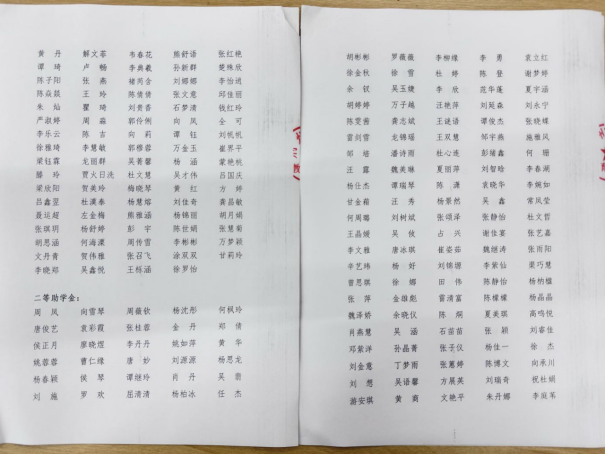 黄 丹 解文苓 韦春花 熊舒语 张红艳
谭 琦 卢 畅 李典羲 孙新群 楚珠欣
陈子阳 张 燕 褚芮合 刘娜娜 李怡逍
陈焱燚 王 玲 陈倩倩 张文意 邱佳丽
朱 灿 瞿 琦 刘贵香 石梦清 钱红玲
严淑婷 周 淼 郭伶俐 向 凤 全 可
李乐云 陈 吉 向 莉 谭 钰 刘帆帆
徐雅琦 李慧敏 郭樱蓉 万金玉 崔界平
梁钰霖 龙丽群 吴菁馨 杨 涵 蒙艳桃
滕 玲 贾火日洗 杜文慧 吴才伟 吕国庆
梁欣阳 贺美玲 梅晓琴 黄 红 方 婷
吕鑫翌 杜潇泰 杨慧熔 刘佳奇 龚晶敏
聂运超 左金梅 熊雅涵 杨锦丽 胡月娟
张琪玥 杨舒婷 彭 宇 陈世娟 张慧菊
胡思涵 何海潇 周传雪 李彬彬 万梦颖
文丹青 贺伟雅 张召飞 涂双双 甘莉玲
李晓郑 吴鑫悦 王栎涵 徐罗怡
二等助学金：
周 凤 向雪琴 周薇钦 杨沈彤 何枫玲
唐俊艺 袁彩霞 张桂蓉 金 丹 郑 倩
侯正月 廖晓煜 李丹丹 姚如萍 黄 华
姚蓉蓉 曹仁缘 唐 妙 刘源源 杨思龙
杨春颖 侯 琴 谭继玲 肖 丹 吴 蓉
刘 施 罗 欢 屈清清 杨柏冰 任 杰
胡彬彬 罗薇薇 李柳缘 李 勇 袁立红
徐金秋 徐 雪 杜 婷 陈 登 谢梦婷
余 钗 吴玉婕 李 欣 范华蓬 夏宇涵
胡婷婷 万子越 汪艳萍 刘苑森 刘永宁
陈雯茜 龚志斌 王谜语 谭俊杰 张晓蝶
雷剑雪 龙锦瑶 王双慧 邹宇燕 施雅凤
邹 培 潘诗雨 杜心连 彭绪鑫 何 珊
王 露 魏美琳 夏丽萍 刘智晗 李春湖
杨仕杰 谭瑞琴 陈 潇 袁晓华 李婉如
甘金莉 汪 秀 杨景然 吴 鑫 常凤莹
何周璐 刘树斌 张颂泽 张静怡 杜文哲
王晶媛 吴 俊 占 兴 谢佳宴 张艺嘉
李文雅 唐冰琪 崔姿茹 魏继涛 张雨阳
辛艺玮 杨 好 刘锦娜 李紫仙 梁巧慧
曾思祺 徐 娜 田 伟 陈静怡 杨枘槛
张 萍 金雄彪 雷清富 陈檬檬 杨晶晶
魏泽娇 余晓仪 陈 炯 夏美琪 高鸣悦
肖燕慧 吴 涵 石苗苗 张 颖 刘睿佳
邓紫洋 孙晶菁 张子仪 杨佳一 徐 杰
刘金意 丁梦雨 张蕙婷 陈博文 向承川
刘 想 吴语馨 方展英 刘瑞奇 祝杜娟
游安琪 黄 裔 文艳平 朱丹娜